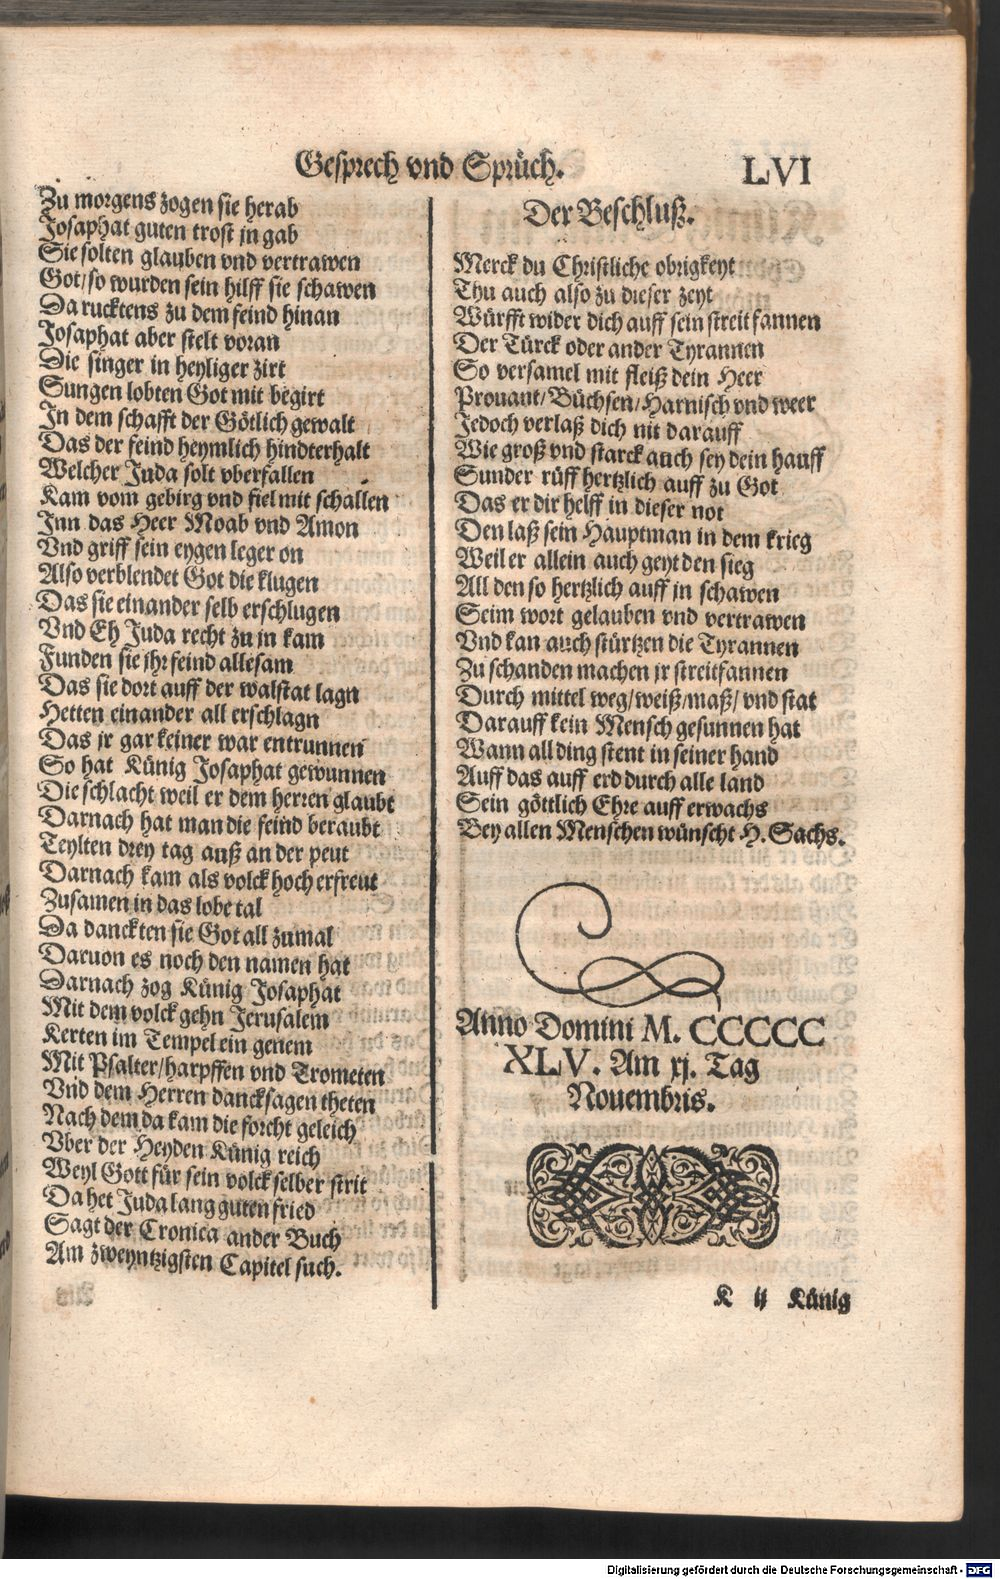 Gesprech vnd Sprüch. LVI
Zu morgens zogen sie herab
Josaphat guten trost jn gab
Sie solten glauben vnd vertrawen
Got/ so wurden sein hilff sie schawen
Da rucktens zu dem feind hinan
Josaphat aber stelt voran
Die singer in heyliger zirt
Sungen lobten Got mit begirt
In dem schafft der Götlich gewalt
Das der feind heymlich hindterhalt
Welcher Juda solt vberfallen
Kam vom gebirg vnd fiel mit schallen
Inn das Heer Moab vnd Amon
Vnd griff sein eygen leger on
Also verblendet Got die klugen
Das sie einander selb erschlugen
Vnd Eh Juda recht zu jn kam
Funden sie jhr feind allesam
Das sie dort auff der walstat lagn
Hetten einander all erschlagn
Das jr gar keiner war entrunnen
So hat Künig Josaphat gewunnen
Die schlacht weil er dem herren glaubt
Darnach hat man die feind beraubt
Teylten drey tag auß an der peut
Darnach kam als volck hoch erfreut
Zusamen in das lobe tal
Da danckten sie Got all zumal
Daruon es noch den namen hat
Darnach zog Künig Josaphat
Mit dem volck gehn Jerusalem
Kerten im Tempel ein genem
Mit Psalter/ harpffen vnd Trometen
Vnd dem Herren dancksagen theten
Nach dem da kam die forcht geleich
Vber der Heyden Künig reich
Weyl Gott für sein volck selber strit
Da het Juda lang guten fried
Sagt der Cronica ander Buch
Am zweyntzigsten Capitel such.
Der Beschluß.
Merck du Christliche obrigkeyt
Thu auch also zu dieser zeyt
Würfft wider dich auff sein streit fannen
Der Türck oder ander Tyrannen
So versamel mit fleiß dein Heer
Prouant/ Büchsen/ Harnisch vnd weer
Jedoch verlaß dich nit darauff
Wie groß vnd starck auch sey dein hauff
Sunder rüff hertzlich auff zu Got
Das er dir helff in dieser not
Den laß sein Hauptman in dem krieg
Weil er allein auch geyt den sieg
All den so hertzlich auff jn schawen
Seim wort gelauben vnd vertrawen
Vnd kan auch stürtzen die Tyrannen
Zu schanden machen jr streitfannen
Durch mittel weg/ weiß/ maß/ vnd stat
Darauff kein Mensch gesunnen hat
Wann all ding stent in seiner hand
Auff das auff erd durch alle land
Sein göttlich Ehre auff erwachs
Bey allen Menschen wünscht H. Sachs.
Anno Domini M. CCCCC
XLV. Am xj. Tag
Nouembris.
K ij Künig
Digitalisierung gefördert durch die Deutsche Forschungsgemeinschaft - DFG